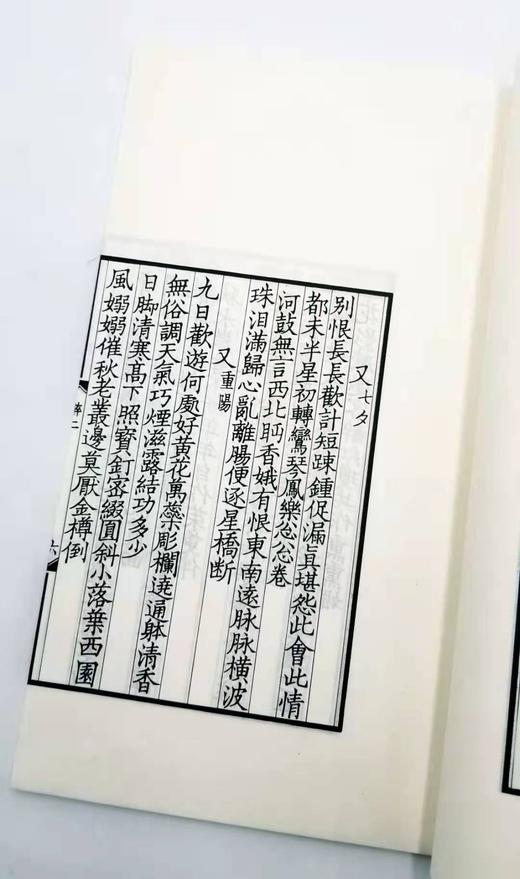 又七夕
別恨長長歡計短踈鍾促漏眞堪怨此會此情
都未半星初轉鸞琴鳳樂怱怱卷
河鼓無言西北眄香娥有恨東南遠脉脉橫波
珠淚滿歸心亂離腸便逐星橋斷
又重陽
九日歡遊何處好黃花萬蘂彫欄遶通躰清香
無俗調天氣巧煙滋露結功多少
日脚清寒高下照寶釘密綴圓斜小落葉西園
風嫋嫋催秋老叢邊莫厭金樽倒
醉二
六